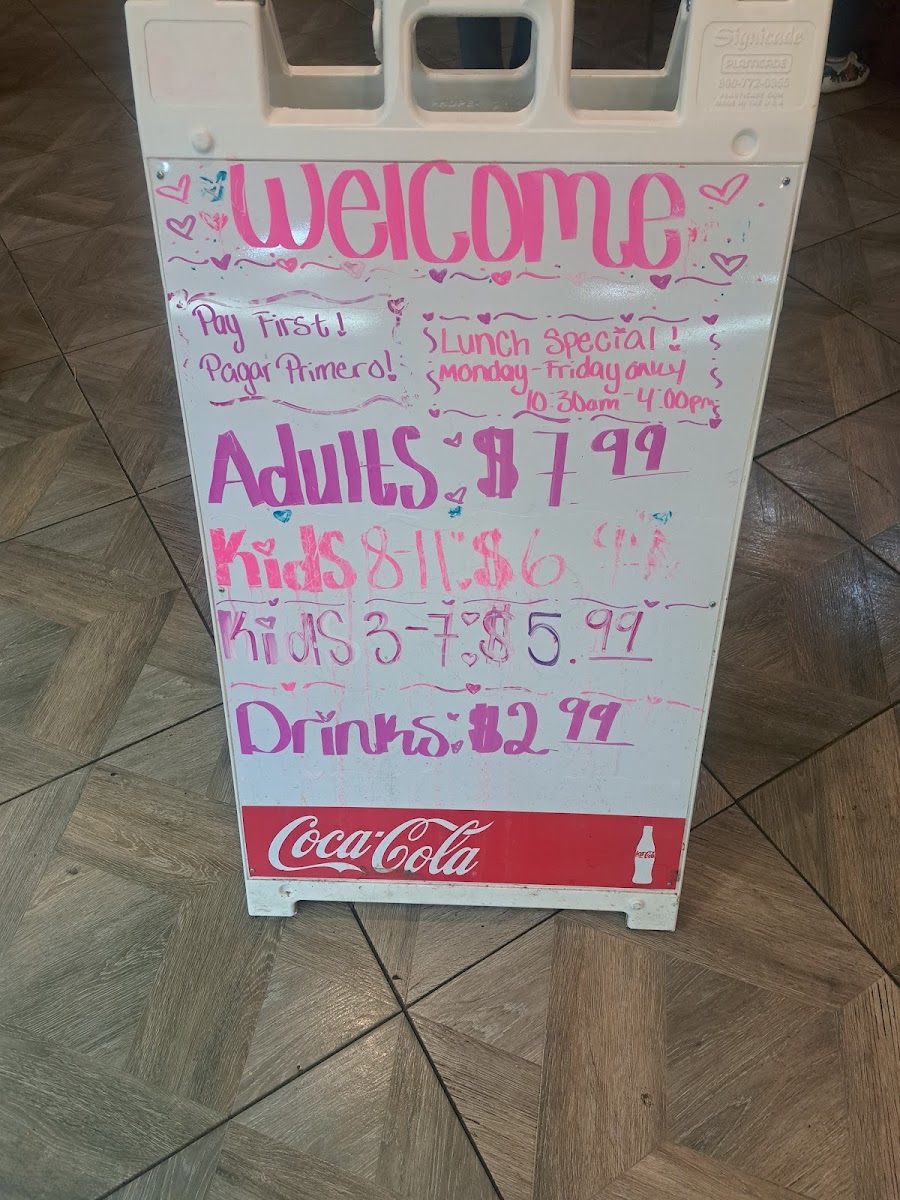 Signicade
PLASTICADE
800-772-0355
PLASTICADE.COM
MADE IN THE U.S.A.
Welcome
Pay First!
Pagar Primero!
Lunch Special!
Monday-Friday only
10:30am-4:00pm
Adults: $7 99
Kids 8-11: $6
Kids 3-7: $5.99
Drinks: $2 99
Coca-Cola
Coca-Cola